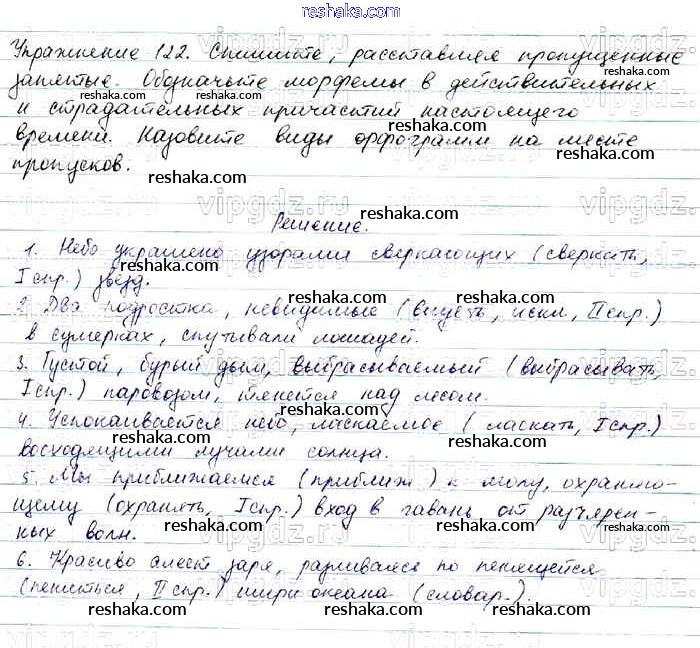 reshaka.com
Упражнение 122. Спишите, расставляя пропущенные
запятые. Обозначьте морфемы в действительных
и страдательных причастий настоящего
времени. Назовите виды орфограмм на месте
пропусков.
Решение.
1. Небо украшено узорами сверкающих (сверкать,
I спр.) звёзд.
2. Два подростка, невидимые (видеть, искл, II спр.)
в сумерках, спутывали лошадей.
3. Густой, бурый дым, выбрасываемый (выбрасывать,
I спр.) паровозом, тянется над лесом.
4. Успокаивается небо, ласкаемое (ласкать, I спр.)
восходящими лучами солнца.
5. Мы приближаемся (приближ ) к молу, охраняю-
щему (охранять, I спр.) вход в гавань от разъярен-
ных волн.
6. Красиво алеет заря, разливаясь по пенящейся
(пениться, II спр.) шири океана (словар.).